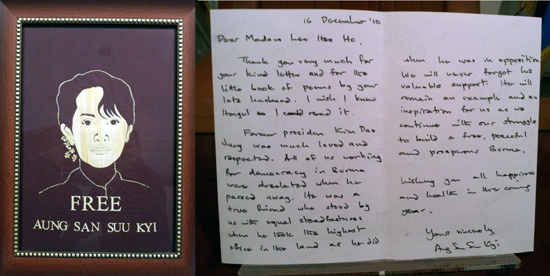 FREE
AUNG SAN SUU KYI
16 December '10
Dear Madame Lee Hee Ho,
Thank you very much for
your kind letter and for the
little book of poems by your
late husband. I wish I knew
so I could read it.
Former president Kim Dae
Jung was much loved and
respected. All of us working
for democracy in Burma
were desolated when he
passed away. He was a
true friend who stood by
us with equal steadfastness
when he took the highest
office in the land as he did
when he was in opposition.
We will never forget his
valuable support. He will
remain an example and an
inspiration for us as we
continue with our struggle
to build a free, peaceful
and prosperous Burma.
Wishing you all happiness
and health in the coming
year.
Yours sincerely,
Aung San Suu Kyi